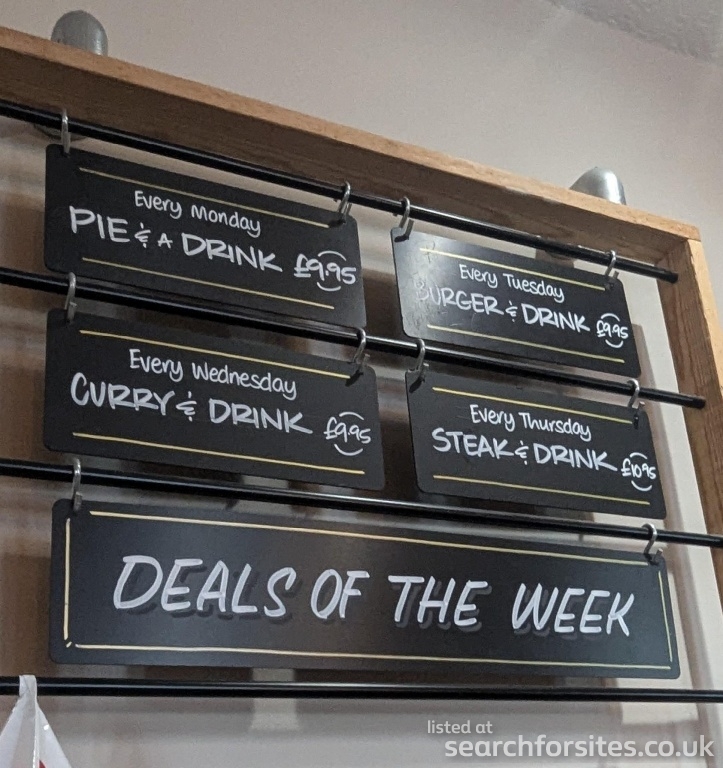 Every Monday
PIE & A DRINK £9.95
Every Tuesday
BURGER & DRINK £9.95
Every Wednesday
CURRY & DRINK £9.95
Every Thursday
STEAK & DRINK £10.95
DEALS OF THE WEEK
listed at
searchforsites.co.uk